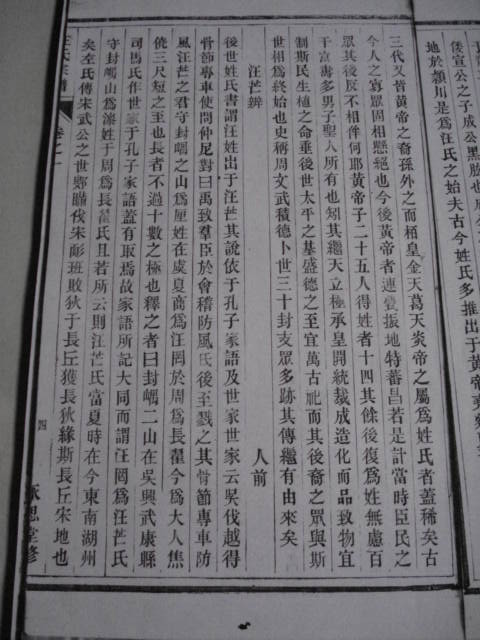 倭宣公之子成公黑肱也
地於潁川是為汪氏之始夫古今姓氏多推出于黃帝
三代又皆黃帝之裔孫外之而栢皇金天葛天炎帝之屬為姓氏者蓋稀矣古
今人之寡眾固相懸絕也今後黃帝者連亘振地特蕃昌若是計當時臣民之
眾其後反不相侔何耶黃帝子二十五人得姓者十四其餘後復為姓無慮百
千富壽多男子聖人所有也矧其繼天立極承皇開統裁成造化而品致物宜
制斯民生植之命垂後世太平之基盛德之至宜萬古祀而其後裔之眾與斯
世相為終始也史稱周文武積德卜世三十封支眾多跡其傳繼有由來矣
汪芒辨
人前
後世姓氏書謂汪姓出于汪芒其說依于孔子家語及世家世家云吳伐越得
骨節專車使問仲尼對曰禹致羣臣於會稽防風氏後至戮之其骨節專車防
風汪芒之君守封嵎之山為厘姓在虞夏商為汪罔於周為長翟今為大人焦
僥三尺短之至也長者不過十數之極也釋之者曰封嵎二山在吳興武康縣
司馬氏作世家于孔子家語蓋有取焉故家語所記大同而謂汪罔為汪芒氏
守封嵎山為漆姓于周為長翟氏且若所云則汪芒氏當夏時在今東南湖州
矣左氏傳宋武公之世鄋瞞伐宋耏班敗狄于長丘獲長狄緣斯長丘宋地也
汪氏宗譜
卷之一
四
思堂修